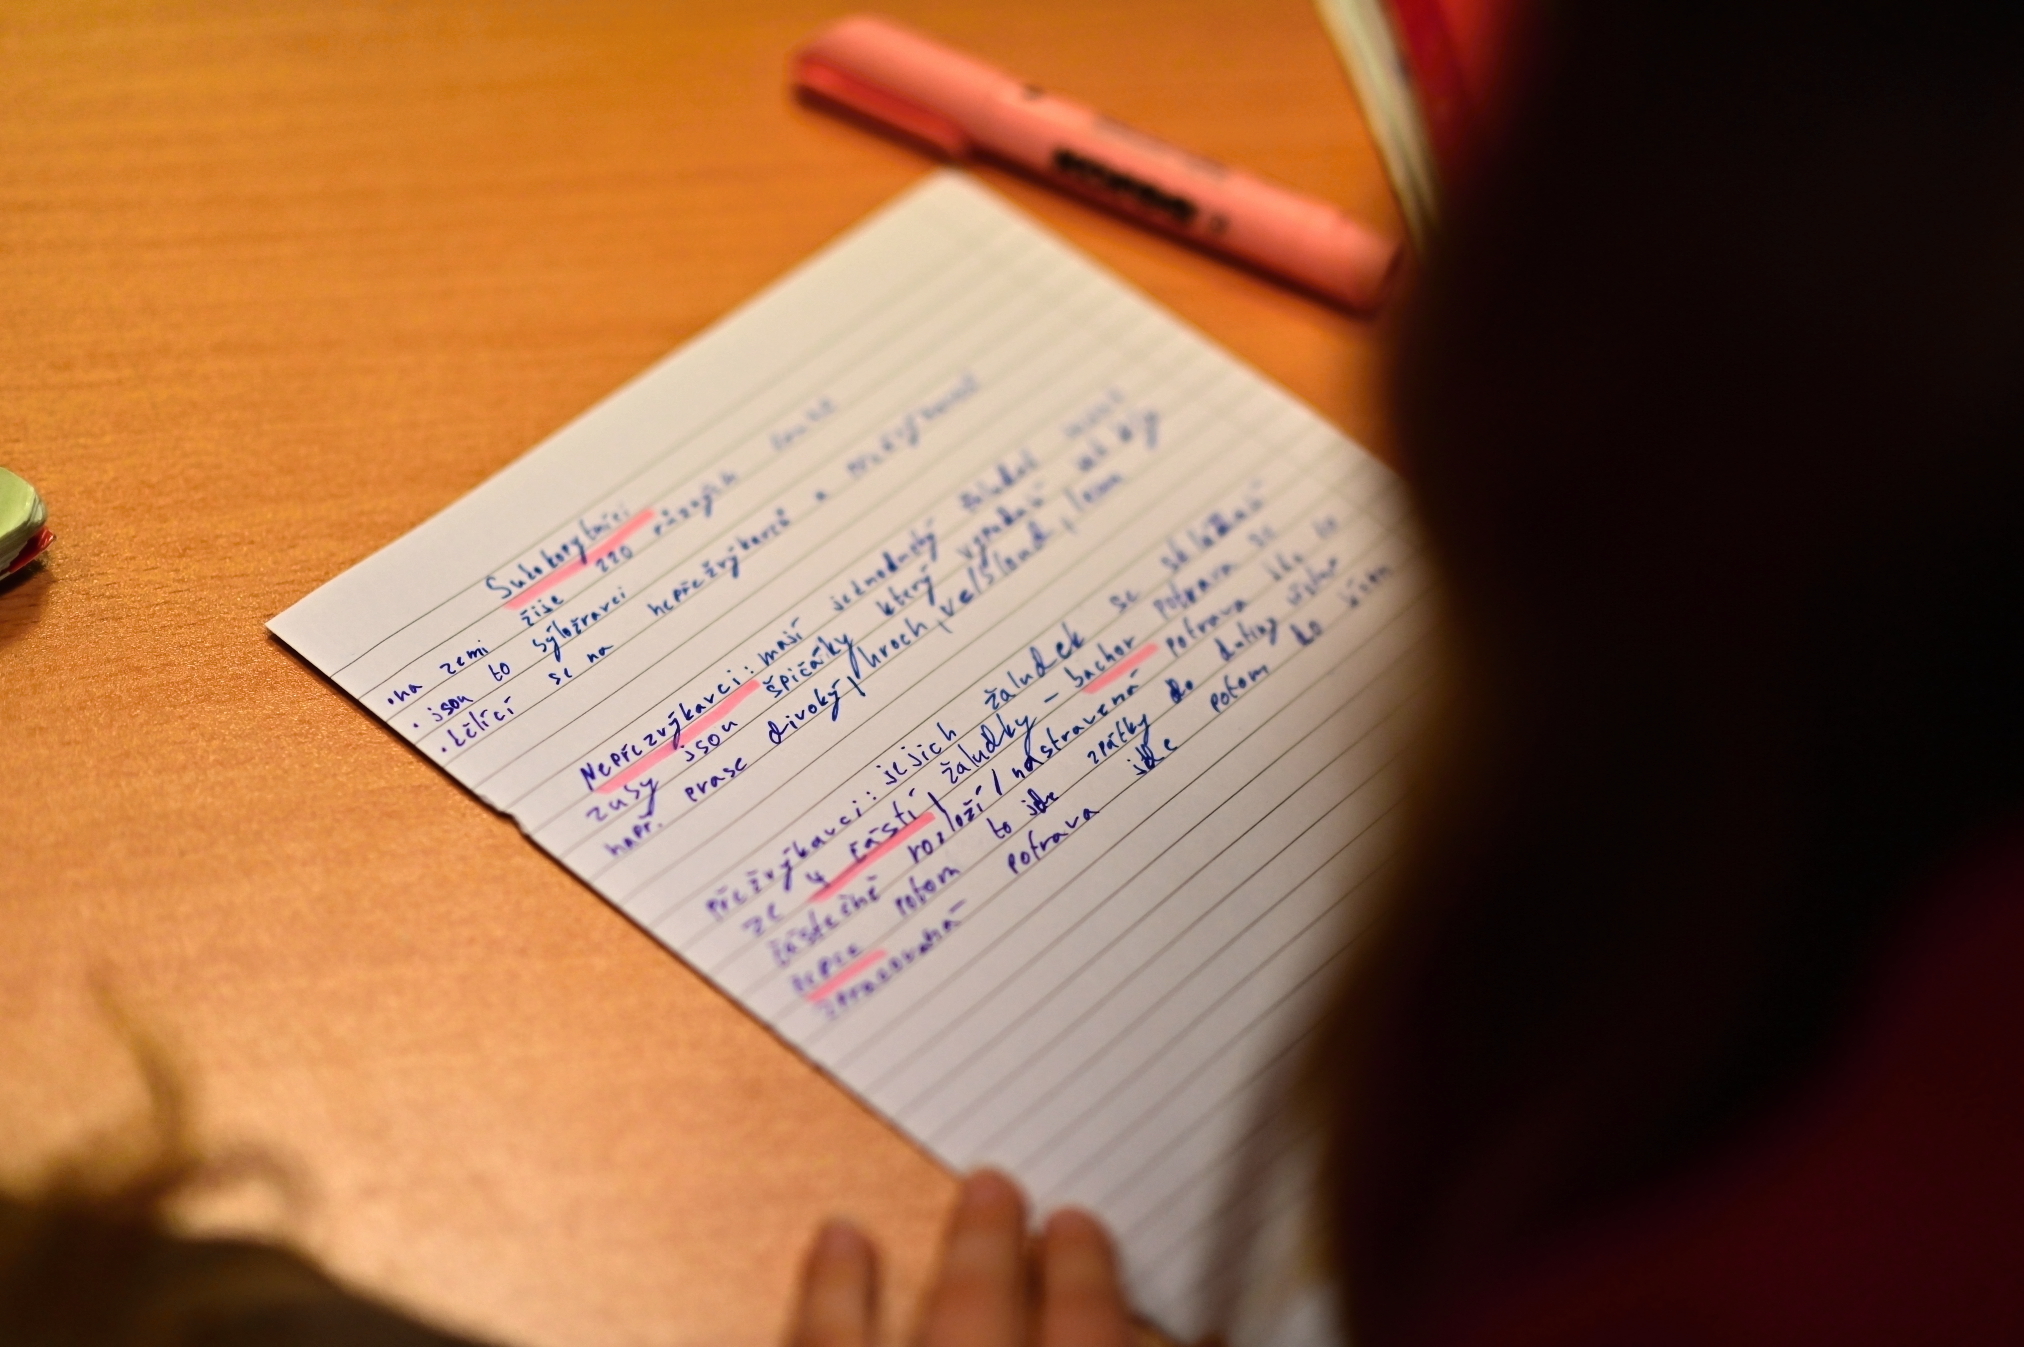 Sudokopytníci
•na zemi žije 220 různých druhů
• jsou to býložravci
• dělící se na nepřežvýkavců a přežvýkavců
Nepřežvýkavci: mají jednoduchý žaludek
zuby jsou špičáky který vypadají jak kly
např. prase divoký, hroch, velbloud, lama
přežvýkavci: jejich žaludek se skládá
ze 4 částí, žaludky - bachor potrava se
částečně rozloží / nestravená potrava jde
potom to jde zpátky do dutiny ústní
potrava jde potom do
zpracovaná